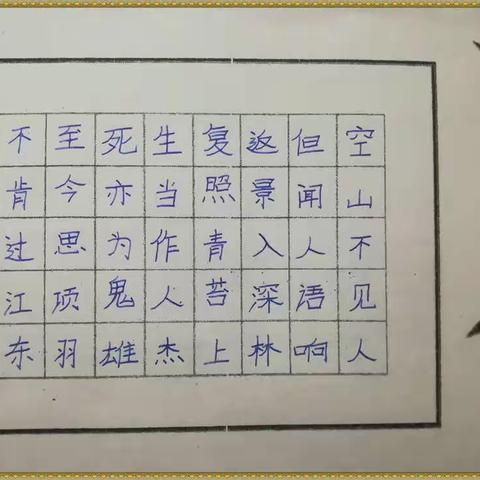 空山不见人
但闻人语响
返景入深林
复照青苔上
生当作人杰
死亦为鬼雄
至今思项羽
不肯过江东